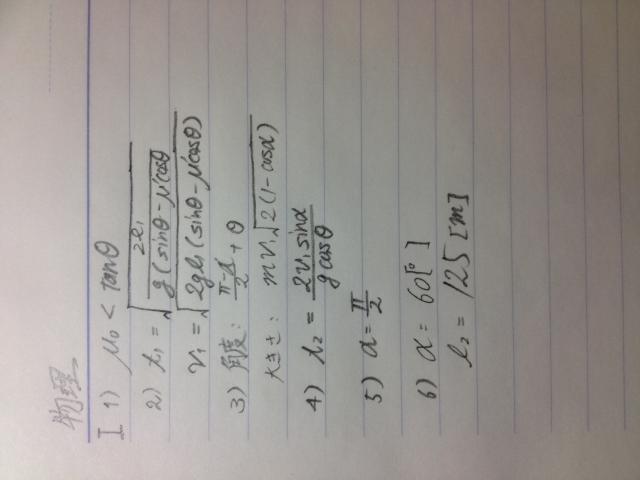 物理
I 1) μ₀ < tanθ
2) t₁ = √(2l₁ / g(sinθ - μ'cosθ))
v₁ = √(2gl₁(sinθ - μ'cosθ))
3) 角度: (π-α)/2 + θ
大きさ: mv₁√(2(1-cosα))
4) t₂ = 2v₁sinα / gcosθ
5) α = π/2
6) α = 60[°]
l₂ = 125 [m]